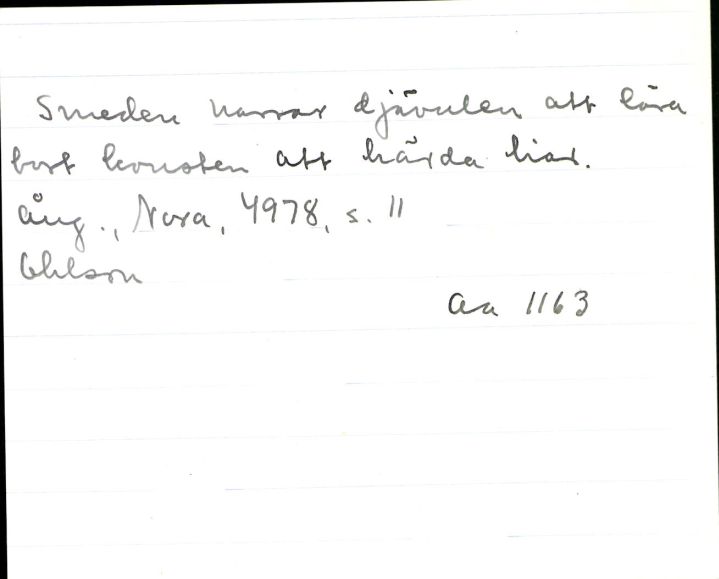 Smeden narrar djävulen att lära
bort konsten att härda liar.
Ång., Nora, 4978, s. 11
Ohlson
Aa 1163